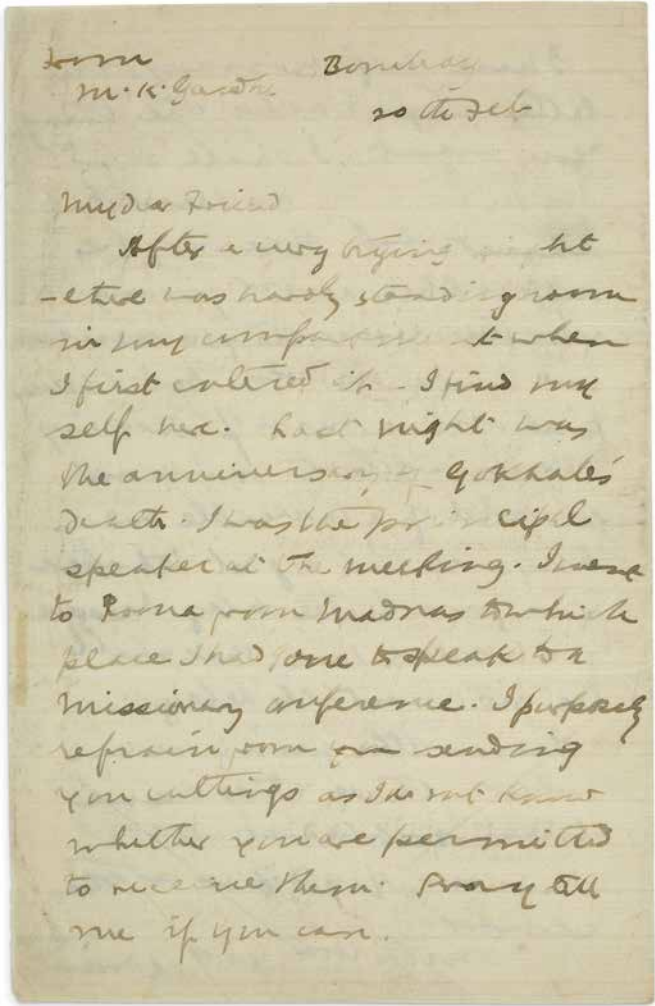 From
M. K. Gandhi
Bombay
20th Feb
My dear Friend
After a very trying night
– there was hardly standing room
in my compartment when
I first entered it – I find my
self here. Last night was
the anniversary of Gokhale's
death. I was the principal
speaker at the meeting. I went
to Poona from Madras to which
place I had gone to speak to a
missionary conference. I purposely
refrain from sending
you cuttings as I do not know
whether you are permitted
to receive them. Pray tell
me if you can.